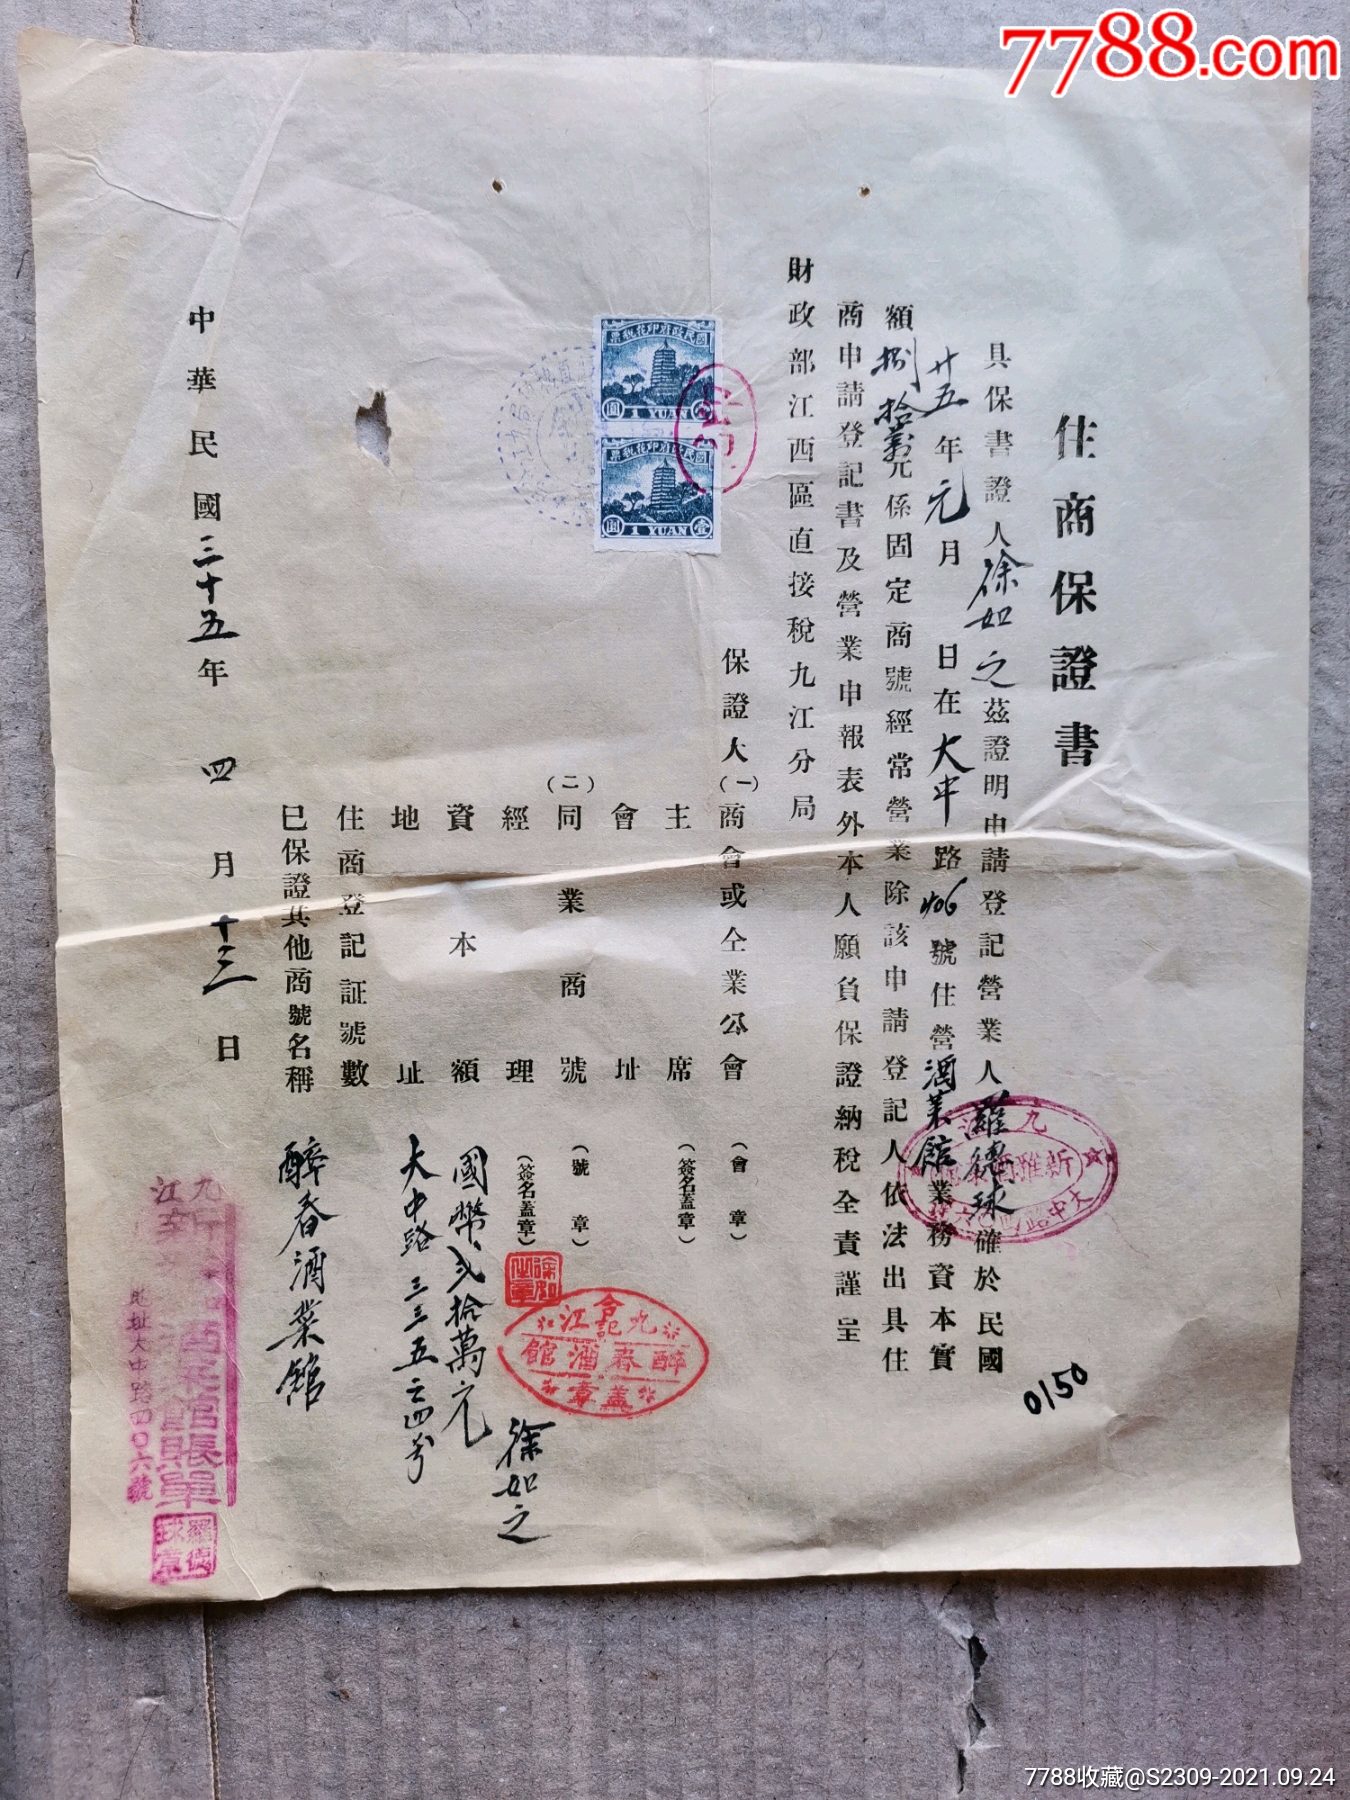 7788.com
住商保證書
具保書證人徐如之茲證明申請登記營業人羅德球確於民國
廿五年元月 日在大中路406號住營酒菜館業務資本實
額捌拾萬元係固定商號經常營業除該申請登記人依法出具住
商申請登記書及營業申報表外本人願負保證納稅全責謹呈
財政部江西區直接稅九江分局
保證人(一)商會或仝業公會(會章)
主席(簽名蓋章)
會址
(二)同業商號(號章)
經理(簽名蓋章)徐如之
資本額國幣弍拾萬元
地址大中路三三五之四号
住商登記証號數
已保證其他商號名稱醉春酒菜館
中華民國三十五年四月十三日
0150
國民政府印花稅票
圓 1 YUAN 壹
國民政府印花稅票
圓 1 YUAN 壹
九江
大中路四〇六
九江
合記
醉春酒館
蓋章
徐如之章
九江
酒菜館賬單
地址大中路四〇六號
羅德球章
7788收藏@S2309-2021.09.24